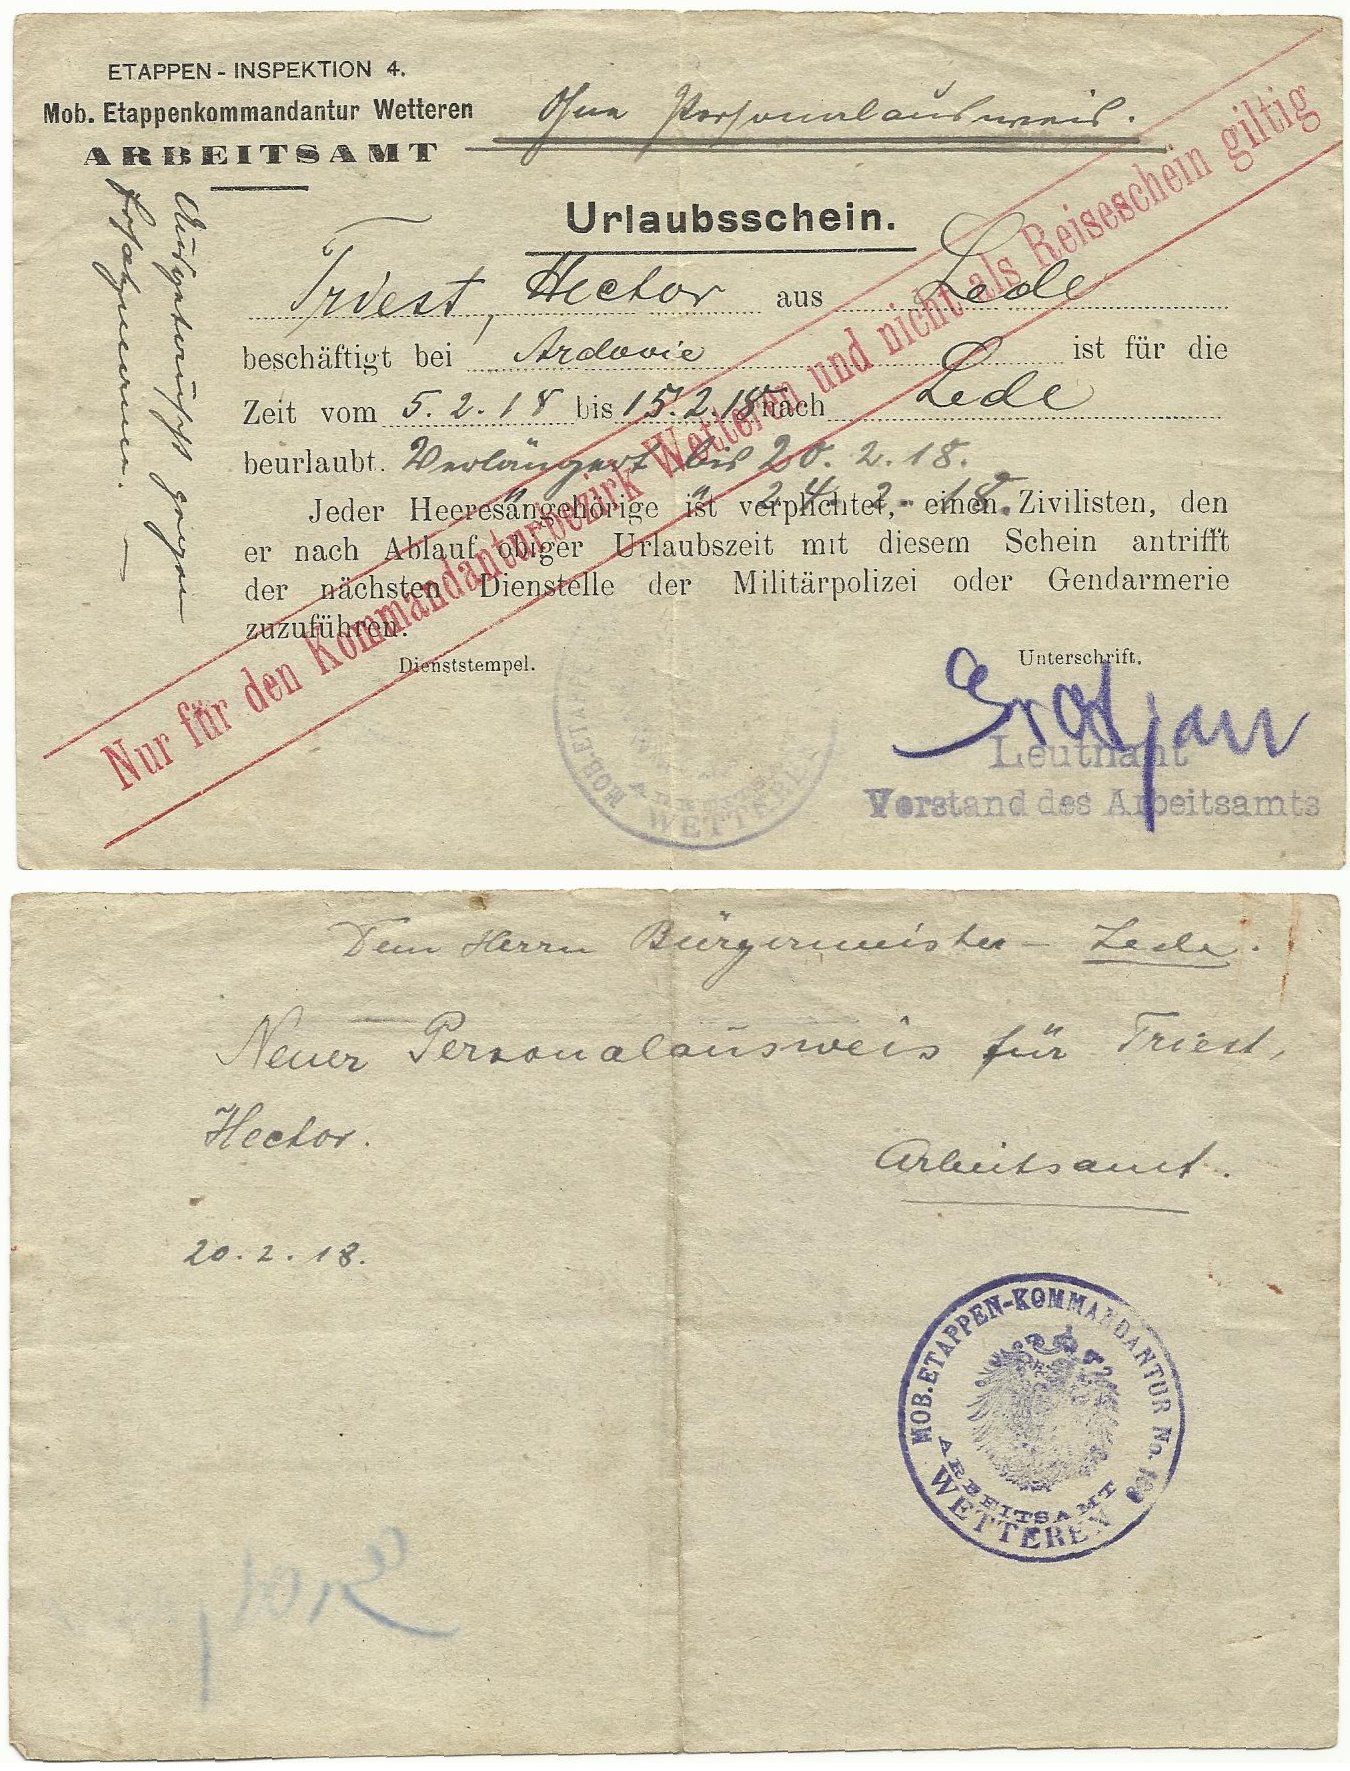 ETAPPEN - INSPEKTION 4.
Mob. Etappenkommandantur Wetteren
ARBEITSAMT
Ohne Personalausweis.
Urlaubsschein.
Triest, Hector aus Lede
beschäftigt bei Ardovie ist für die
Zeit vom 5.2.18 bis 15.2.18 nach Lede
beurlaubt. Verlängert bis 20.2.18.
24.2.18.
Jeder Heeresangehörige ist verplichtet, einen Zivilisten, den
er nach Ablauf obiger Urlaubszeit mit diesem Schein antrifft
der nächsten Dienstelle der Militärpolizei oder Gendarmerie
zuzuführen.
Dienststempel. Unterschrift.
Leutnant
Vorstand des Arbeitsamts
Nur für den Kommandanturbezirk Wetteren und nicht als Reiseschein giltig
MOB. ETAPPEN
ARBEITSAMT
WETTEREN
Dem Herrn Bürgermeister - Lede.
Neuer Personalausweis für Triest,
Hector.
Arbeitsamt.
20.2.18.
MOB. ETAPPEN-KOMMANDANTUR No.
ARBEITSAMT
WETTEREN